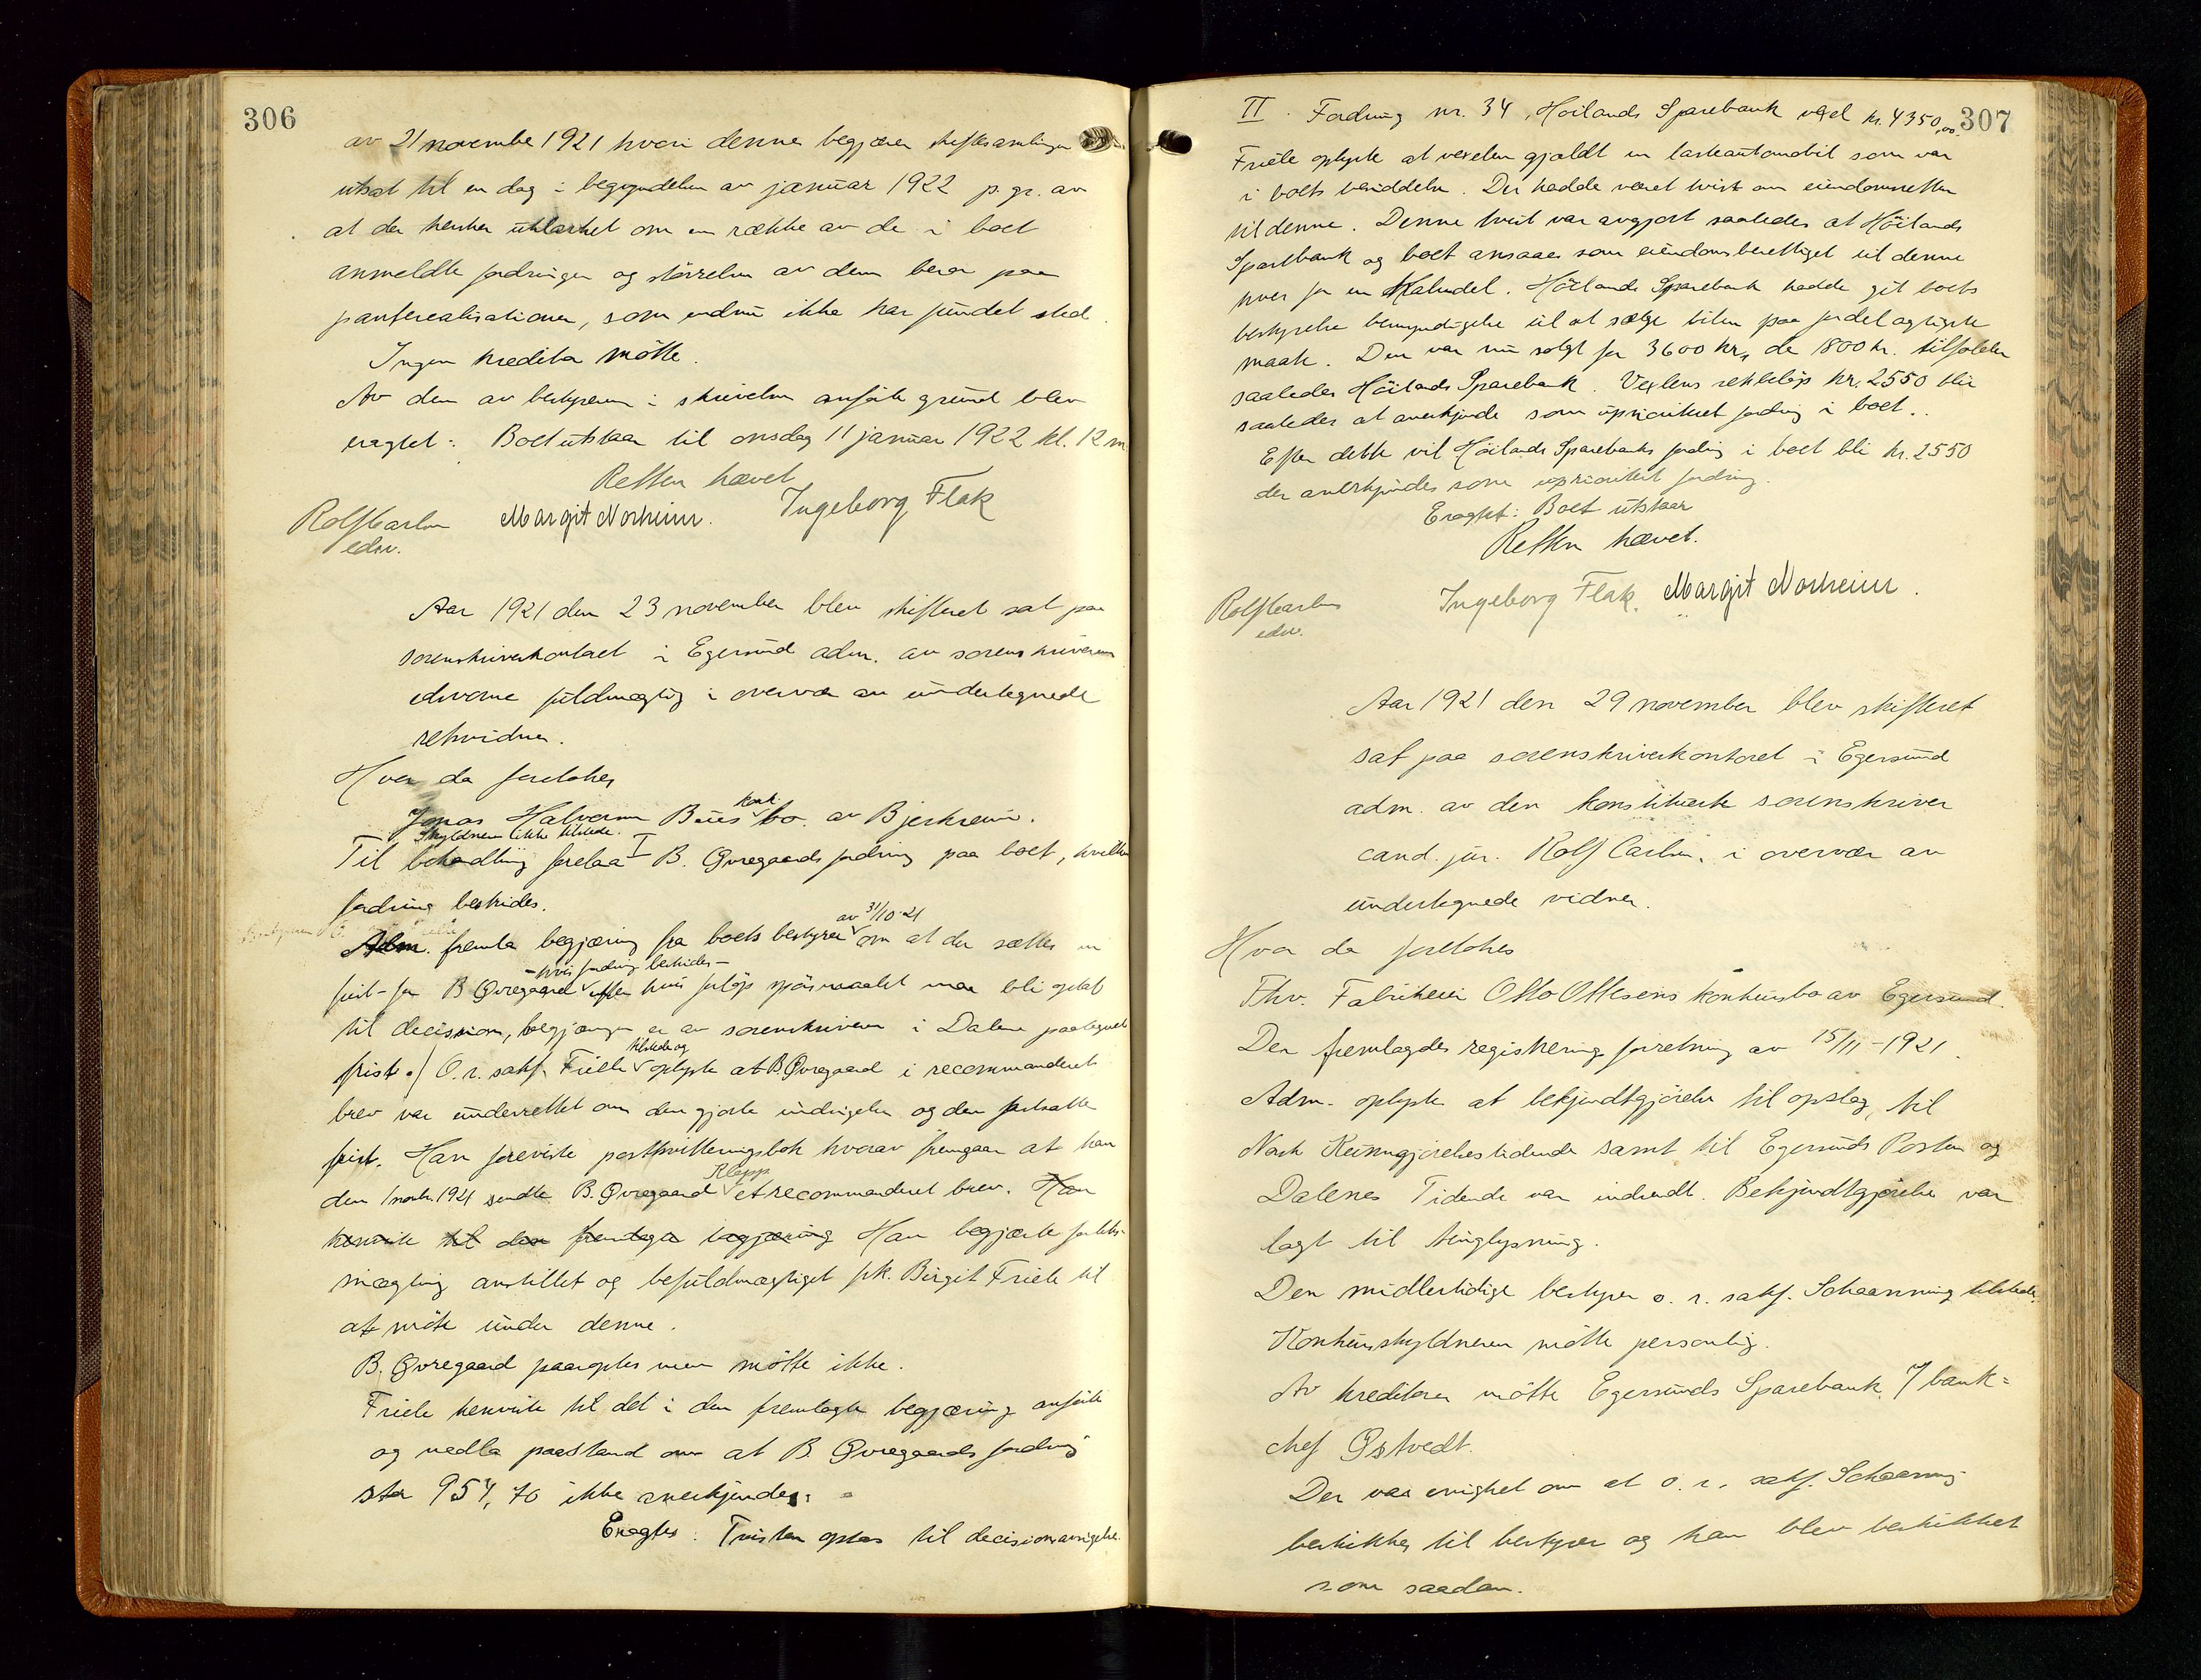 306
av 21 november 1921 hvori denne begjærer skiftesamlingen
utsat til en dag i begyndelsen av januar 1922 p. gr. av
at der hersker uklarhet om en række av de i boet
anmeldte fordringer og størrelsen av dem beror paa
panterealisationer, som endnu ikke har fundet sted.
Ingen kreditor mötte.
Av den av bestyreren i skrivelsen anförte grund blev
eragtet: Boet utstaar til onsdag 11 januar 1922 kl. 12 m.
Retten hævet
Rolf Carlsen Margit Norheim. Ingeborg Flak
edsv.
Aar 1921 den 23 november blev skifteret sat paa
sorenskriverkontoret i Egersund adm. av sorenskriverens
edsvorne fuldmægtig i overvær av undertegnede
retsvidner.
Hvor da foretokes
konk.
Jonas Halvorsen Bues bo av Bjerkreim.
Skyldneren ikke tilstede.
Til behandling forelaa I B. Øvregaards fordring paa boet, hvilken
fordring bestrides.
av 31/10-21
Adm. fremla begjæring fra boets bestyrer om at der sættes en
- hvis fordring bestrides -
frist for B Øvregaard efter hvis forløp spörsmaalet maa bli optat
til decision, begjæringen er av sorenskriveren i Dalene paategnet
tilstede og
frist. / O.r. sakf. Friele oplyste at B. Øvregaard i recommanderet
brev var underrettet om den gjorte indsigelse og den fastsatte
frist. Han foreviste postkvitteringsbok hvorav fremgaar at han
Klepp
den 1 novbr. 1921 sendte B. Øvregaard et recommanderet brev. Han
henviste til den fremlagte begjæring Han begjærte forliks-
mægling anstillet og befuldmægtiget frk. Birgit Friele til
at møte under denne.
B. Øvregaard paaroptes men mötte ikke.
Friele henviste til det i den fremlagte begjæring anførte
og nedla paastand om at B. Øvregaards fordring
stor 954,70 ikke anerkjendes.
Eragtes: Tvisten optas til decisionsavsigelse.
307
II. Fordring nr. 34, Höilands Sparebank vexel kr. 4350,00.
Friele oplyste at vexelen gjældt en lasteautomobil som var
i boets besiddelse. Der hadde været tvist om eiendomsretten
til denne. Denne tvist var avgjort saaledes at Höilands
Sparebank og boet ansaaes som eiendomsberettiget til denne
hver for en halvdel. Höilands Sparebank hadde git boets
bestyrelse bemyndigelse til at sælge bilen paa fordelagtigste
maate. Den var nu solgt for 3600 kr, de 1800 kr. tilfalder
saaledes Höilands Sparebank. Vexlens restbelöp kr. 2550 blir
saaledes at anerkjende som uprioritert fordring i boet.
Efter dette vil Höilands Sparebanks fordring i boet bli kr. 2550
der anerkjendes som uprioritert fordring.
Eragtet: Boet utstaar
Retten hævet.
Rolf Carlsen Ingeborg Flak. Margit Norheim.
edsv.
Aar 1921 den 29 november blev skifteret
sat paa sorenskriverkontoret i Egersund
adm. av den konstituerte sorenskriver
cand. jur. Rolf Carlsen, i overvær av
undertegnede vidner.
Hvor da foretokes
Fhv. Fabrikeier Otto Ottesens konkursbo av Egersund.
Der fremlagdes registreringsforretning av 15/11-1921.
Adm. oplyste at bekjendtgjörelse til opslag, til
Norsk Kundgjörelsestidende samt til Egersunds Posten og
Dalenes Tidende var indsendt. Bekjendtgjörelse var
lagt til tinglysning.
Den midlertidige bestyrer o. r. sakf. Schaanning tilstede.
Konkursskyldneren mötte personlig.
Av kreditorer mötte Egersunds Sparebank v/ bank-
chef Østvedt.
Der var enighet om at o. r. sakf. Schaanning
beskikkes til bestyrer og han blev beskikket
som saadan.